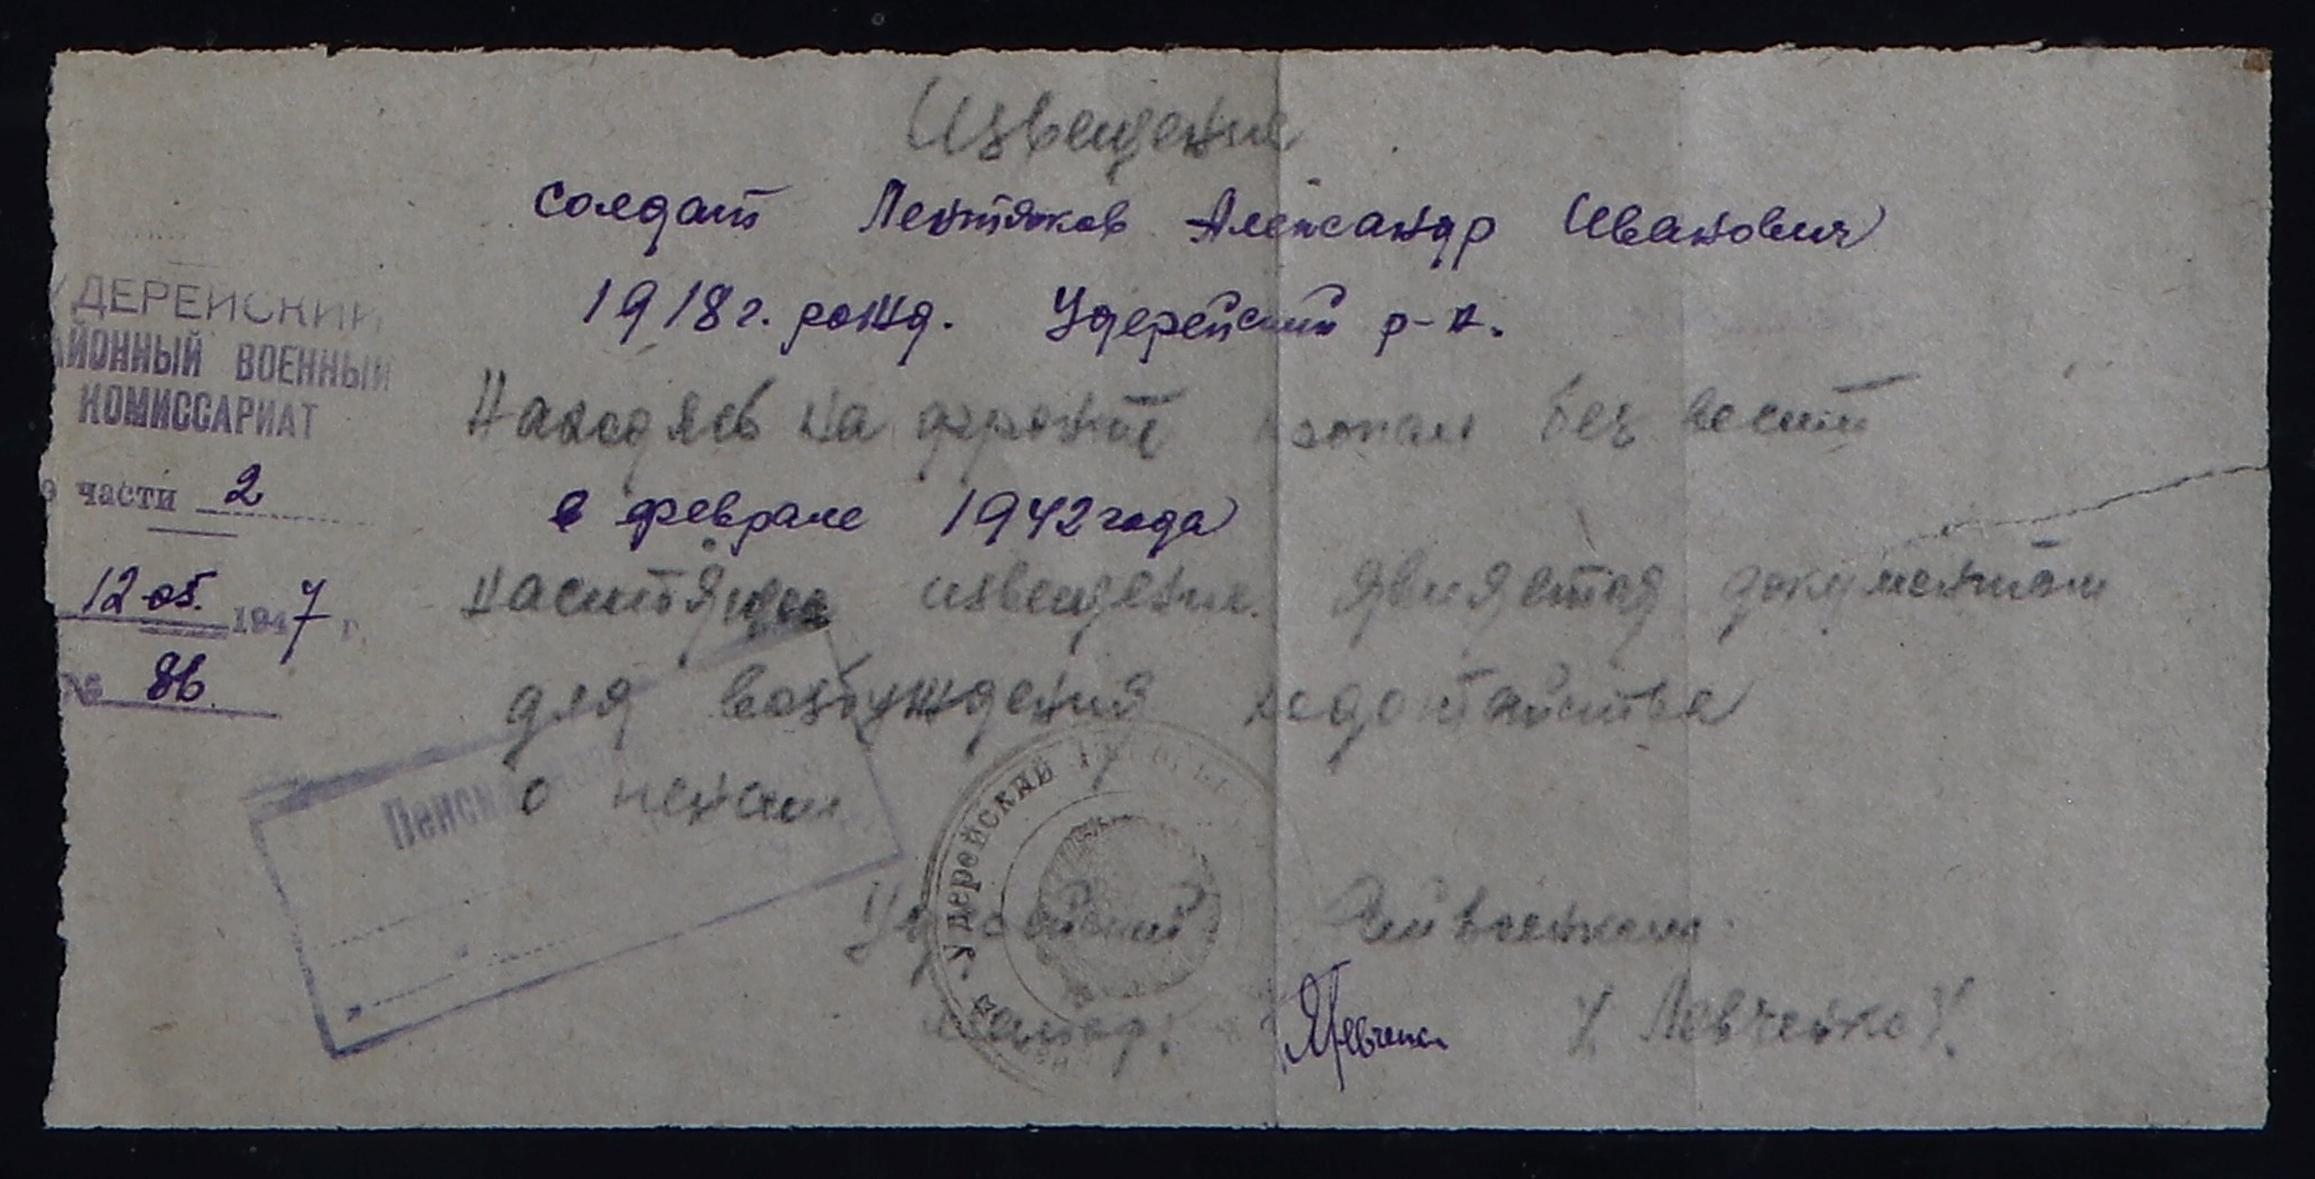 Извещение
солдат Лентяков Александр Иванович
1918 г. рожд. Удерейский р-н.
Находясь на фронте пропал без вести
в феврале 1942 года
настоящее извещение является документом
для возбуждения ходотайства
о пенсии
Удерейский Райвоенком
Майор: Левченко / Левченко /
УДЕРЕЙСКИЙ
РАЙОННЫЙ ВОЕННЫЙ
КОМИССАРИАТ
части 2
12 05. 1947 г.
№ 86
УДЕРЕЙСКИЙ